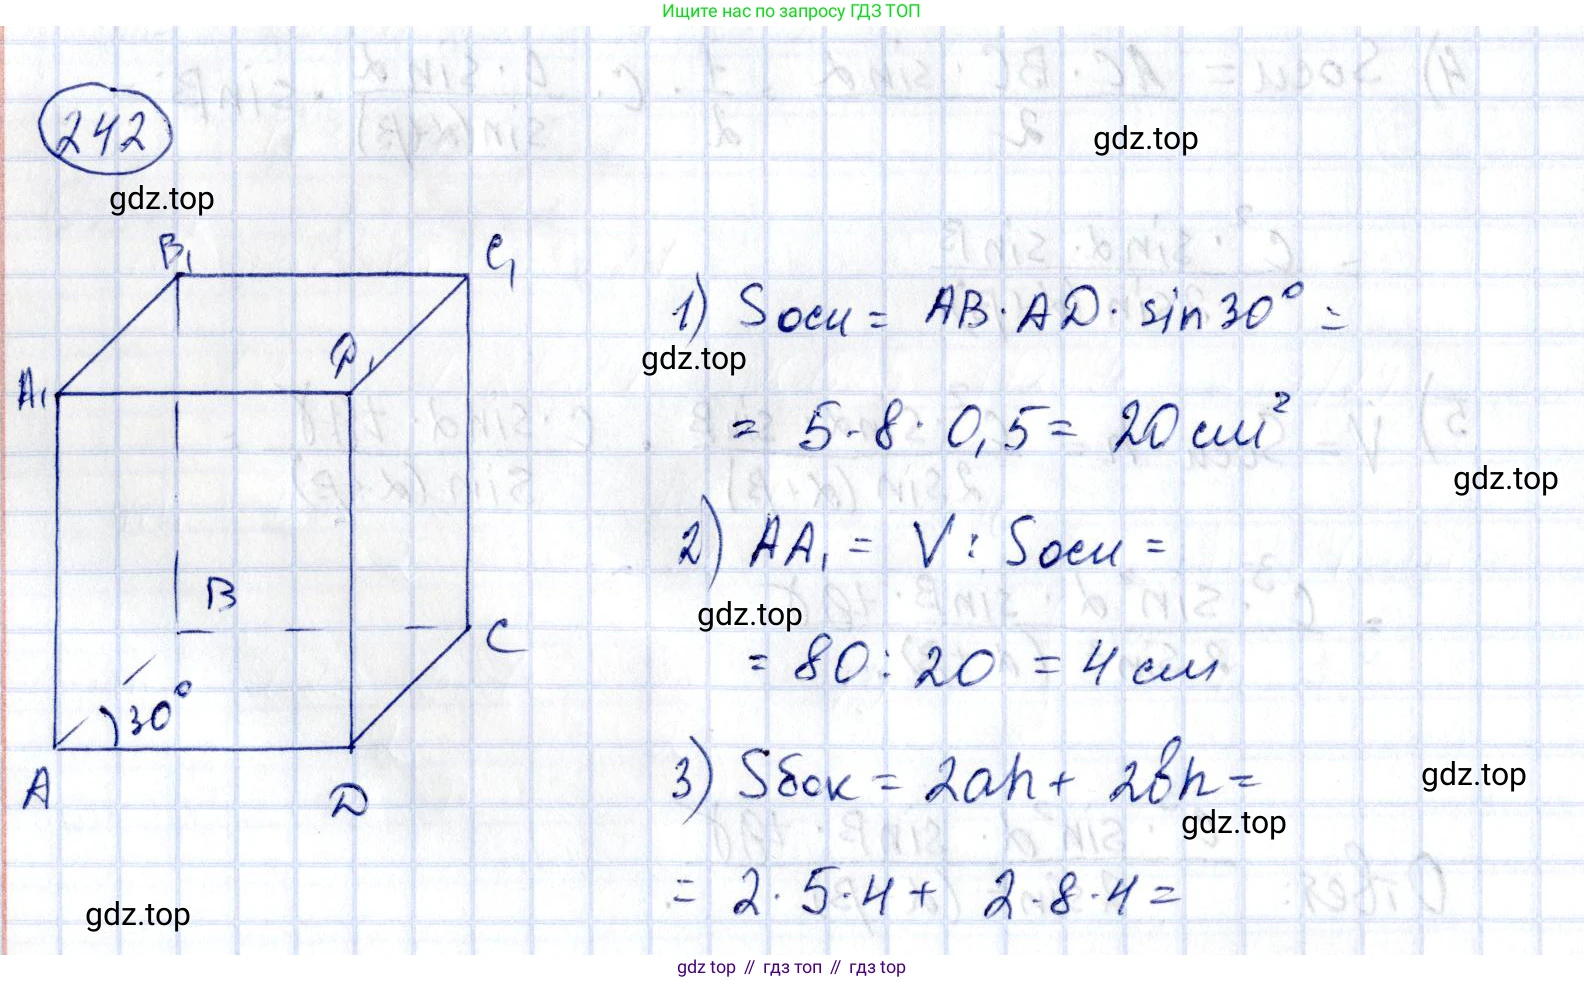 Ищите нас по запросу ГДЗ ТОП
242
gdz.top
gdz.top
B₁
C₁
A₁
D₁
B
C
30°
A
D
1) Sосн = AB · AD · sin 30° =
gdz.top
= 5 · 8 · 0,5 = 20 см²
gdz.top
2) AA₁ = V : Sосн =
gdz.top
= 80 : 20 = 4 см
3) Sбок = 2ah + 2bh =
gdz.top
gdz.top
= 2 · 5 · 4 + 2 · 8 · 4 =
gdz.top
gdz top // гдз топ // гдз top